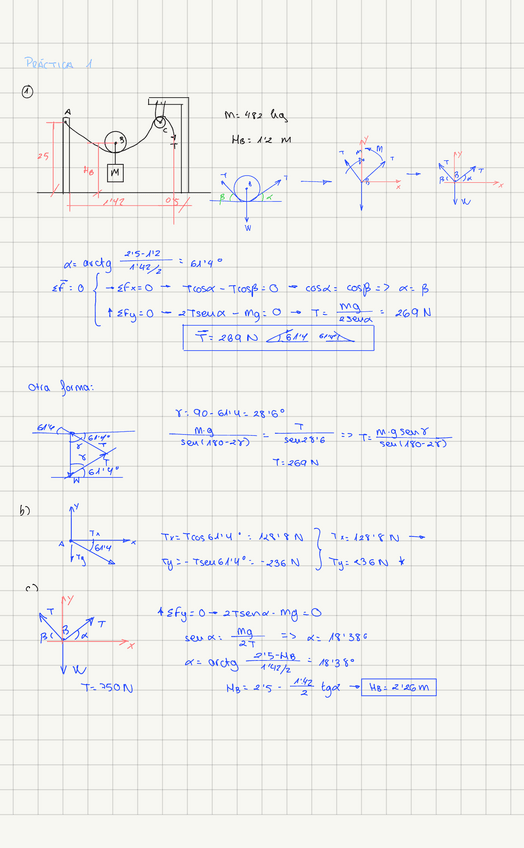 PRÁCTICA 1
1
A
B
C
T
M
2'5
HB
1'42
0'5
M = 48'2 kg
HB = 1'2 m
T T
B
β α
W
Y
M
T T
B
x
Y
T T
β α
x
W
α = arctg (2'5 - 1'2)/(1'42/2) = 61'4°
ΣF = 0 { → ΣFx = 0 → Tcosα - Tcosβ = 0 → cosα = cosβ => α = β
↑ ΣFy = 0 → 2Tsenα - mg = 0 → T = mg/(2senα) = 269 N
T = 269 N 61'4 61'4
Otra forma:
γ = 90 - 61'4 = 28'6°
m·g/sen(180-2γ) = T/sen28'6 => T = m·g senγ/sen(180-2γ)
T = 269 N
61'4 61'4°
γ T
γ T
W 61'4°
b)
Y
A Tx x
61'4
Ty
Tx = Tcos61'4° = 128'8 N } Tx = 128'8 N →
Ty = -Tsen61'4° = -236 N } Ty = 236 N ↓
c)
Y
T T
β B α
x
W
T = 750 N
↑ ΣFy = 0 → 2Tsenα - mg = 0
senα = mg/2T => α = 18'38°
α = arctg (2'5 - HB)/(1'42/2) = 18'38°
HB = 2'5 - 1'42/2 tgα → HB = 2'26 m